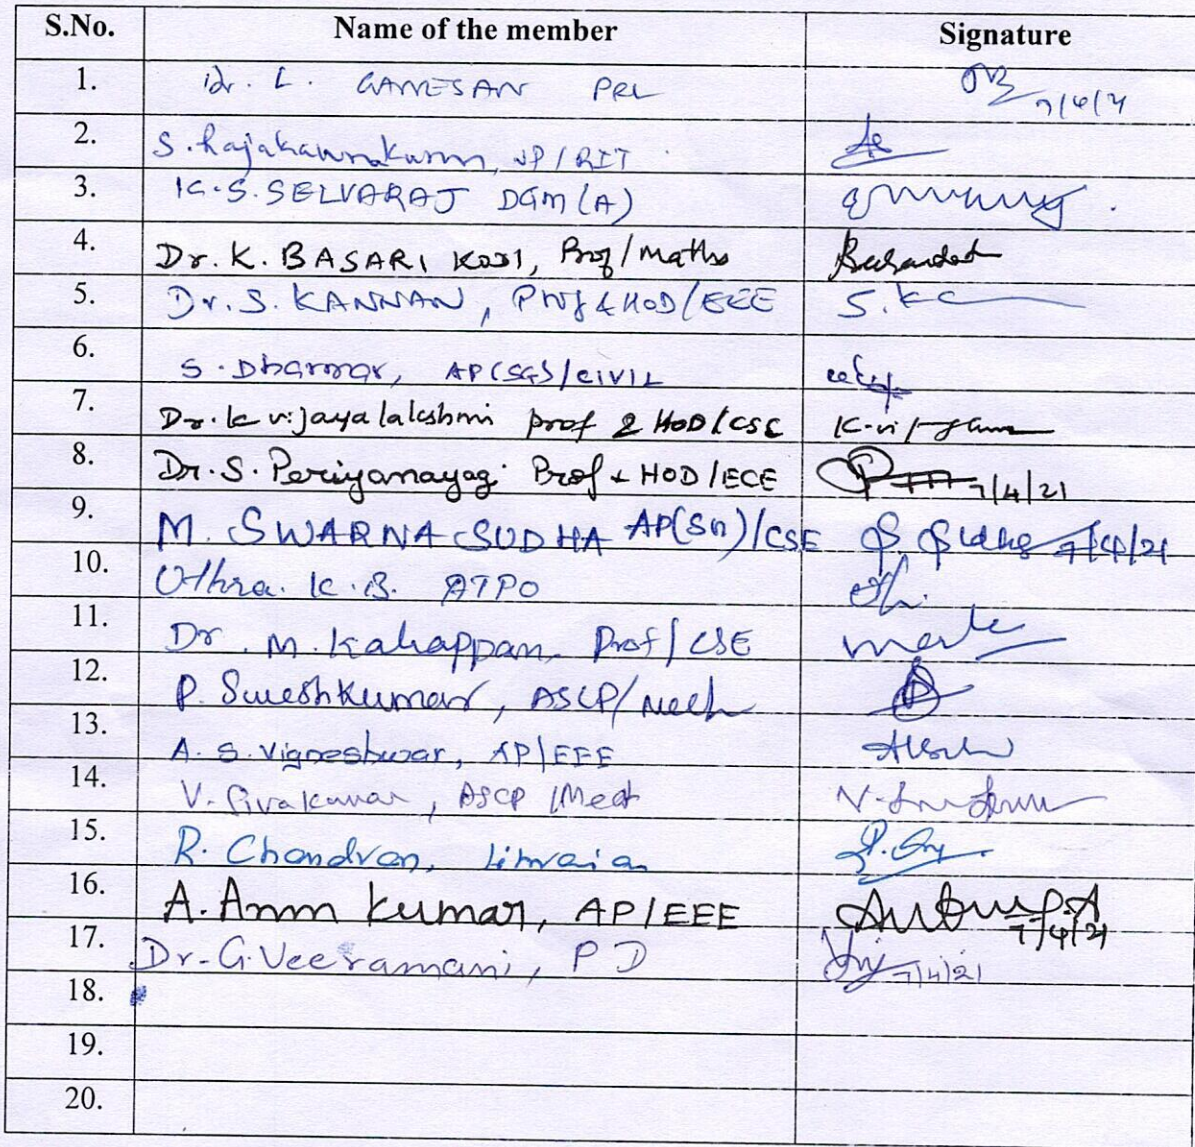 S.No. Name of the member Signature
1. Dr. L. GANESAN PRL 7/4/21
2. S. Rajakarunakaran, VP/RIT
3. K.S. SELVARAJ DGM (A)
4. Dr. K. BASARI KODI, Prof/Maths
5. Dr. S. KANNAN, Prof & HOD/EEE S. K
6. S. Dharmar, AP(SG)/CIVIL
7. Dr. K. Vijayalakshmi Prof & HOD/CSE K. Vi
8. Dr. S. Periyanayagi Prof & HOD/ECE 7/4/21
9. M. SWARNA SUDHA AP(SG)/CSE 7/4/21
10. Uthra. K.B. ATPO
11. Dr. M. Kaliappan, Prof/CSE
12. P. Sureshkumar, ASCP/Mech
13. A. S. Vigneshwar, AP/EEE
14. V. Sivakumar, ASCP/Mech
15. R. Chandran, Librarian
16. A. Arun Kumar, AP/EEE 7/4/21
17. Dr. G. Veeramani, PD 7/4/21
18.
19.
20.